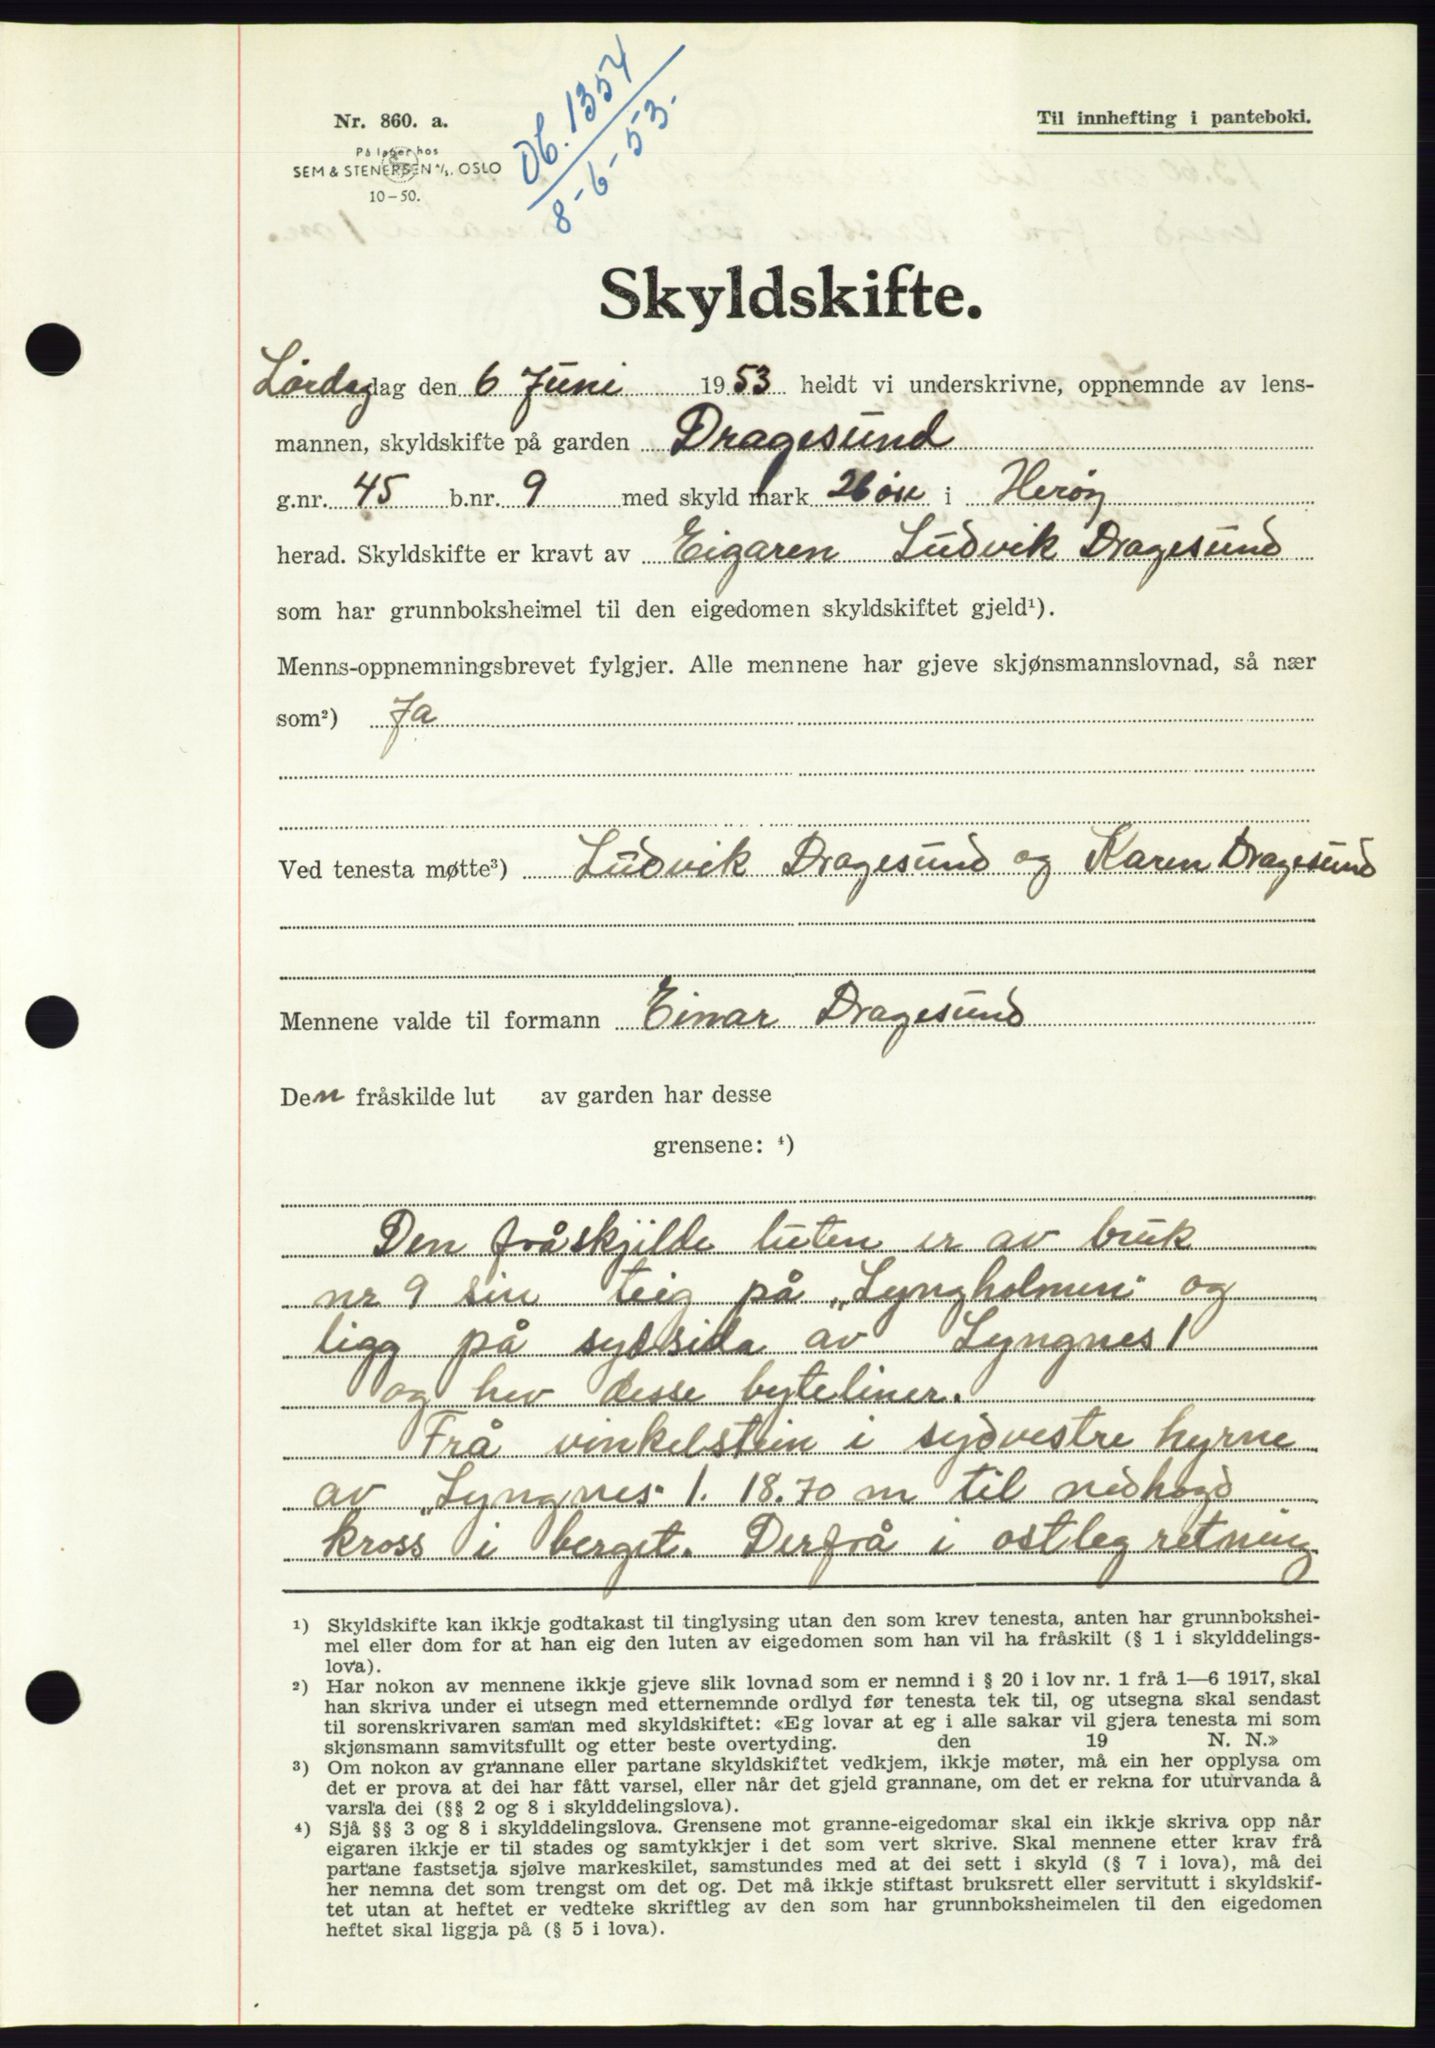 Nr. 860. a.
På lager hos
SEM & STENERSEN A/S, OSLO
10-50.
Db. 1354
8-6-53.
Til innhefting i panteboki.
Skyldskifte.
Lördag dag den 6 Juni 1953 heldt vi underskrivne, oppnemnde av lens-
mannen, skyldskifte på garden Dragesund
g.nr. 45 b.nr. 9 med skyld mark 26 øre i Herøy
herad. Skyldskifte er kravt av Eigaren Ludvik Dragesund
som har grunnboksheimel til den eigedomen skyldskiftet gjeld¹).
Menns-oppnemningsbrevet fylgjer. Alle mennene har gjeve skjønsmannslovnad, så nær
som²) Ja
Ved tenesta møtte³) Ludvik Dragesund og Karen Dragesund
Mennene valde til formann Einar Dragesund
Den fråskilde lut av garden har desse
grensene: ⁴)
Den fråskjilde luten er av bruk
nr 9 sin teig på „Lyngholmen" og
ligg på sydsida av Lyngnes 1
og hev desse byteliner.
Frå vinkelstein i sydvestre hyrne
av „Lyngnes" 1. 18.70 m til nedhogd
kross i berget. Derfrå i ostleg retning
¹) Skyldskifte kan ikkje godtakast til tinglysing utan den som krev tenesta, anten har grunnbokshei-
mel eller dom for at han eig den luten av eigedomen som han vil ha fråskilt (§ 1 i skylddelings-
lova).
²) Har nokon av mennene ikkje gjeve slik lovnad som er nemnd i § 20 i lov nr. 1 frå 1—6 1917, skal
han skriva under ei utsegn med etternemnde ordlyd før tenesta tek til, og utsegna skal sendast
til sorenskrivaren saman med skyldskiftet: «Eg lovar at eg i alle sakar vil gjera tenesta mi som
skjønsmann samvitsfullt og etter beste overtyding. den 19 N. N.»
³) Om nokon av grannane eller partane skyldskiftet vedkjem, ikkje møter, må ein her opplysa om
det er prova at dei har fått varsel, eller når det gjeld grannane, om det er rekna for uturvanda å
varsla dei (§§ 2 og 8 i skylddelingslova).
⁴) Sjå §§ 3 og 8 i skylddelingslova. Grensene mot granne-eigedomar skal ein ikkje skriva opp når
eigaren ikkje er til stades og samtykkjer i det som vert skrive. Skal mennene etter krav frå
partane fastsetja sjølve markeskilet, samstundes med at dei sett i skyld (§ 7 i lova), må dei
her nemna det som trengst om det og. Det må ikkje stiftast bruksrett eller servitutt i skyldskif-
tet utan at heftet er vedteke skriftleg av den som har grunnboksheimelen til den eigedomen
heftet skal liggja på (§ 5 i lova).